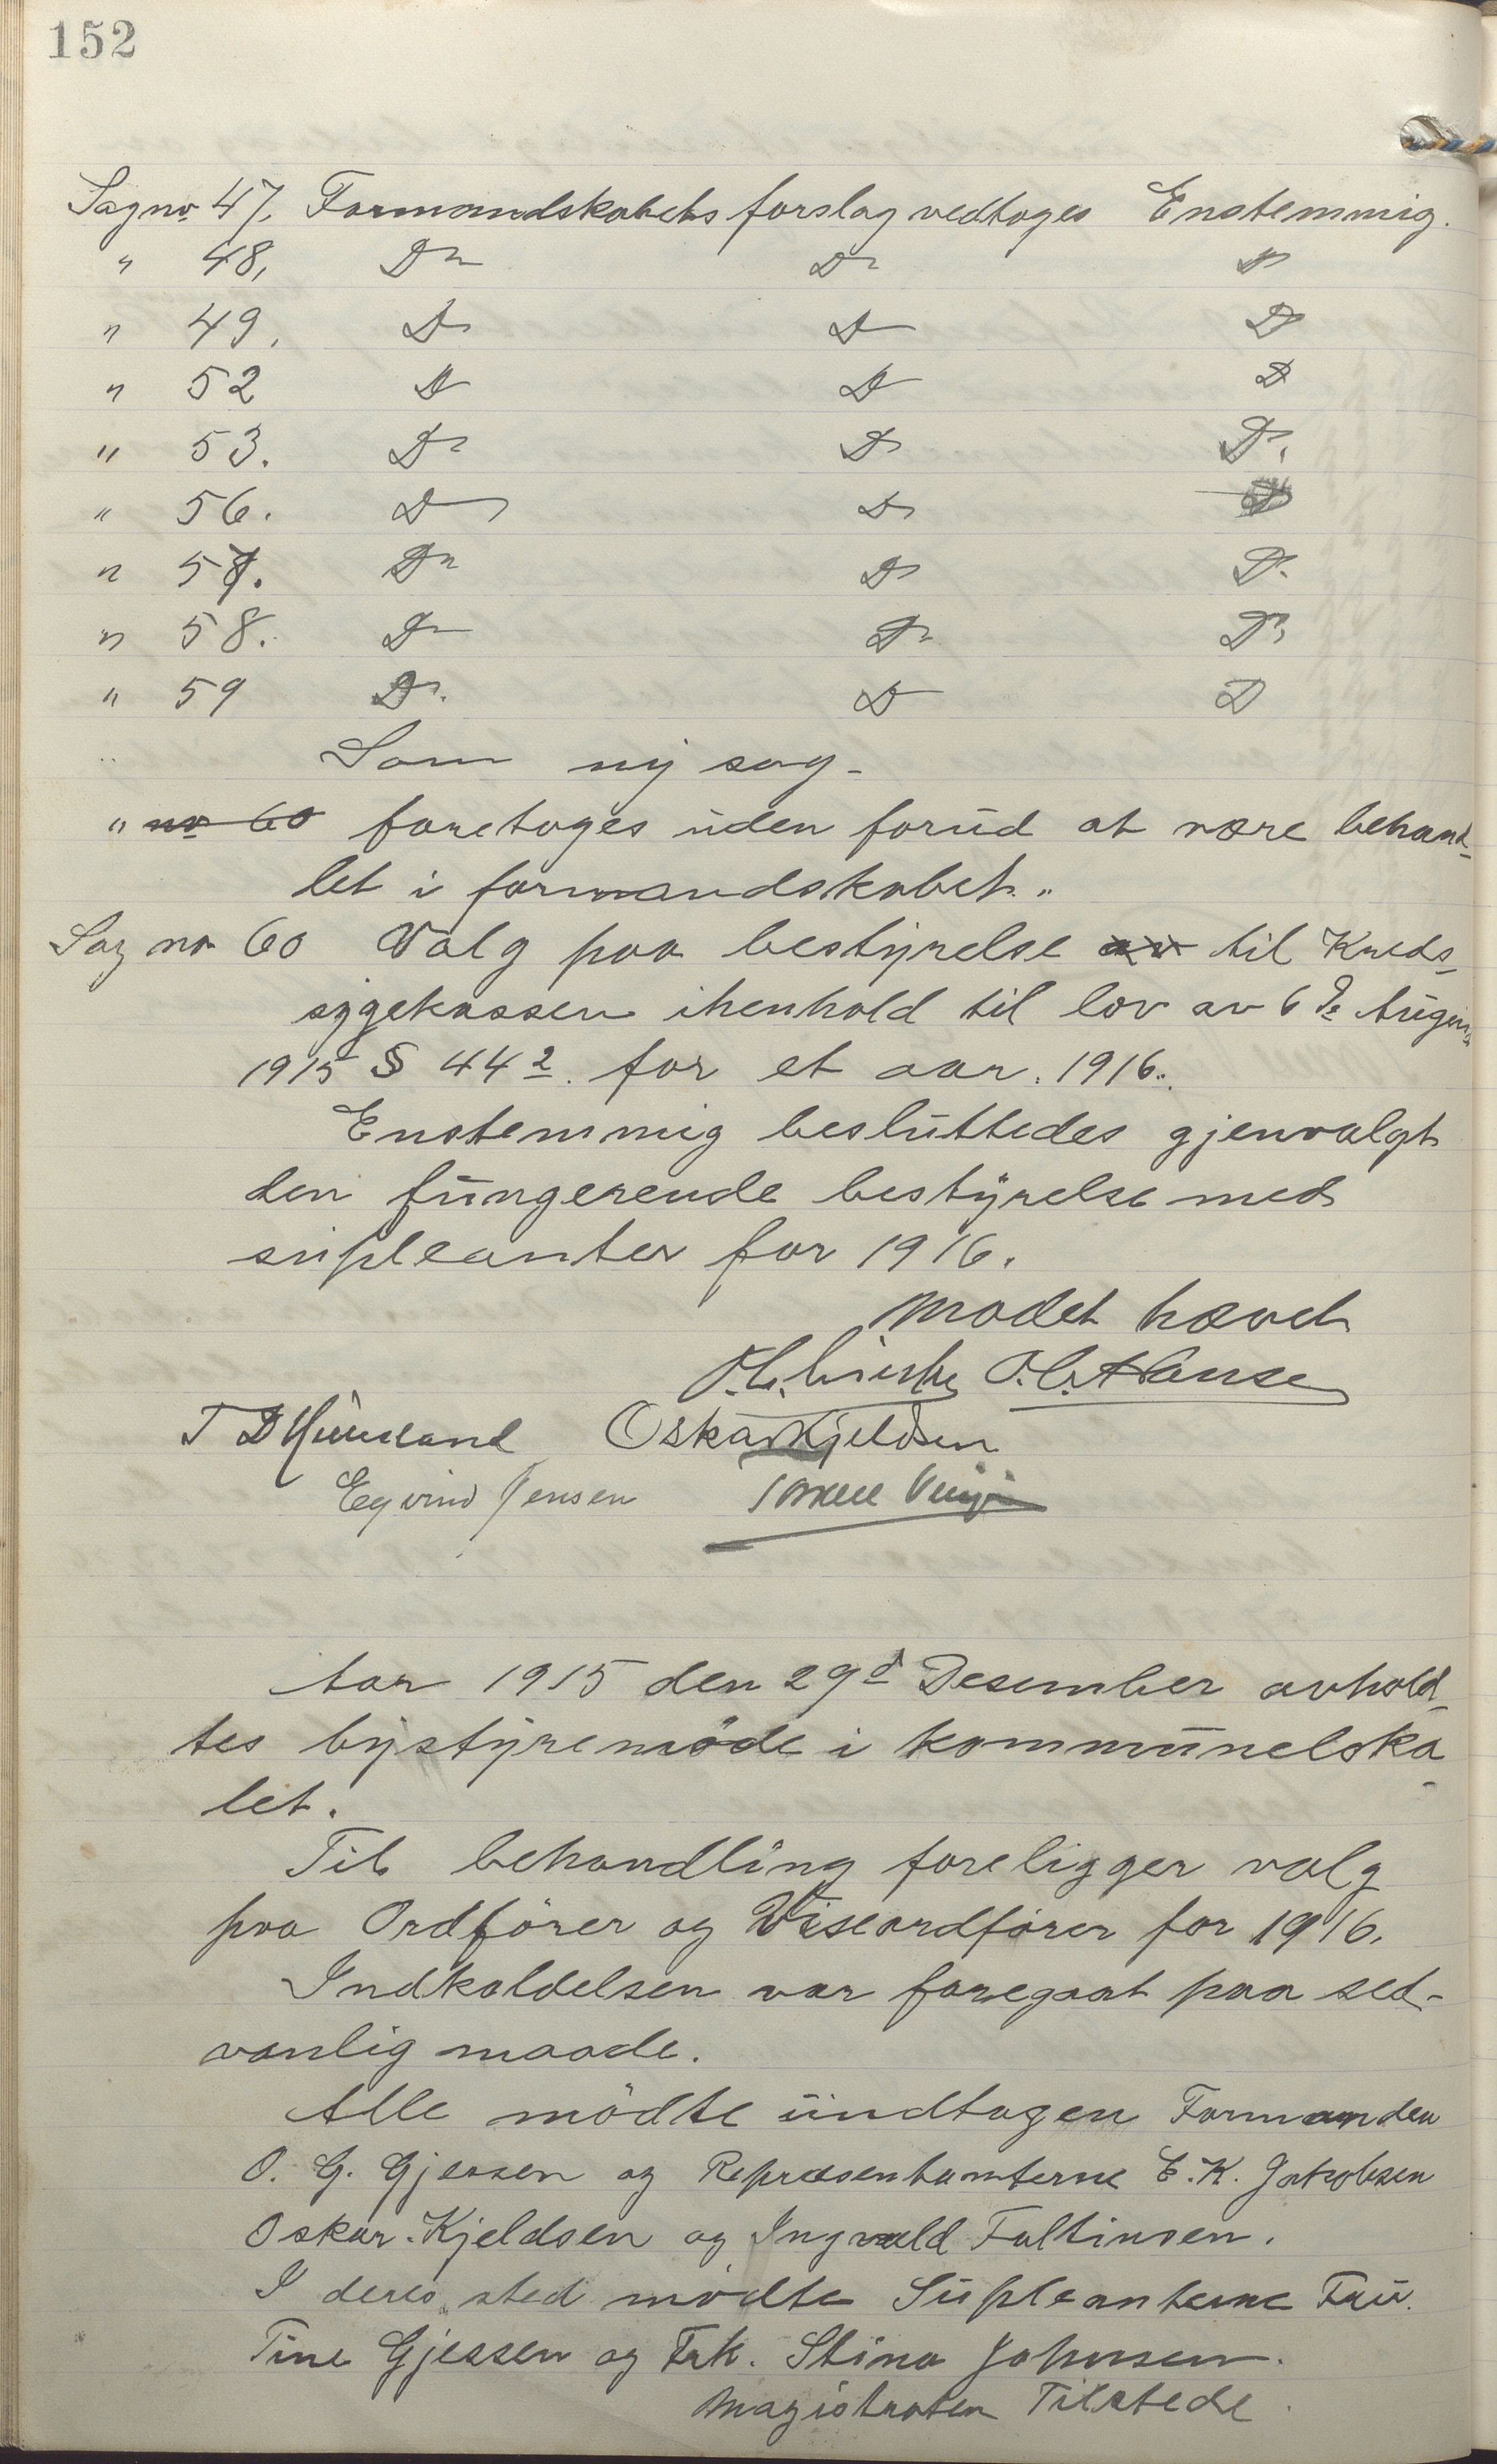 152
Sag no 47. Formandskabets forslag vedtoges Enstemmig.
" 48, Do Do Do
" 49. Do Do Do
" 52 Do Do Do
" 53. Do Do Do,
" 56. Do Do Do
" 57. Do Do Do
" 58. Do Do Do
" 59 Do. Do Do
Som ny sag -
" no 60 foretoges uden forud at være behand-
let i formandskabet."
Sag no 60 Valg paa bestyrelse av til Kreds-
sygekassen ihenhold til lov av 6te August
1915 § 44 2. for et aar. 1916.
Enstemmig besluttedes gjenvalgt
den fungerende bestyrelse med
supleanter for 1916.
Mødet hævet
Oskar Kjeldsen
Eyvind Jensen
Aar 1915 den 29d Desember avhold-
tes bystyremöde i kommuneloka-
let.
Til behandling foreligger valg
paa Ordförer og Viseordförer for 1916.
Indkaldelsen var foregaat paa sed-
vanlig maade.
Alle mödte undtagen Formanden
O. G. Gjessen og Repræsentanterne E. K. Jakobsen
Oskar Kjeldsen og Ingvald Faltinsen.
I deres sted mödte Supleanterne Fru
Tine Gjessen og Frk. Stina Johnsen.
Magistraten Tilstede.